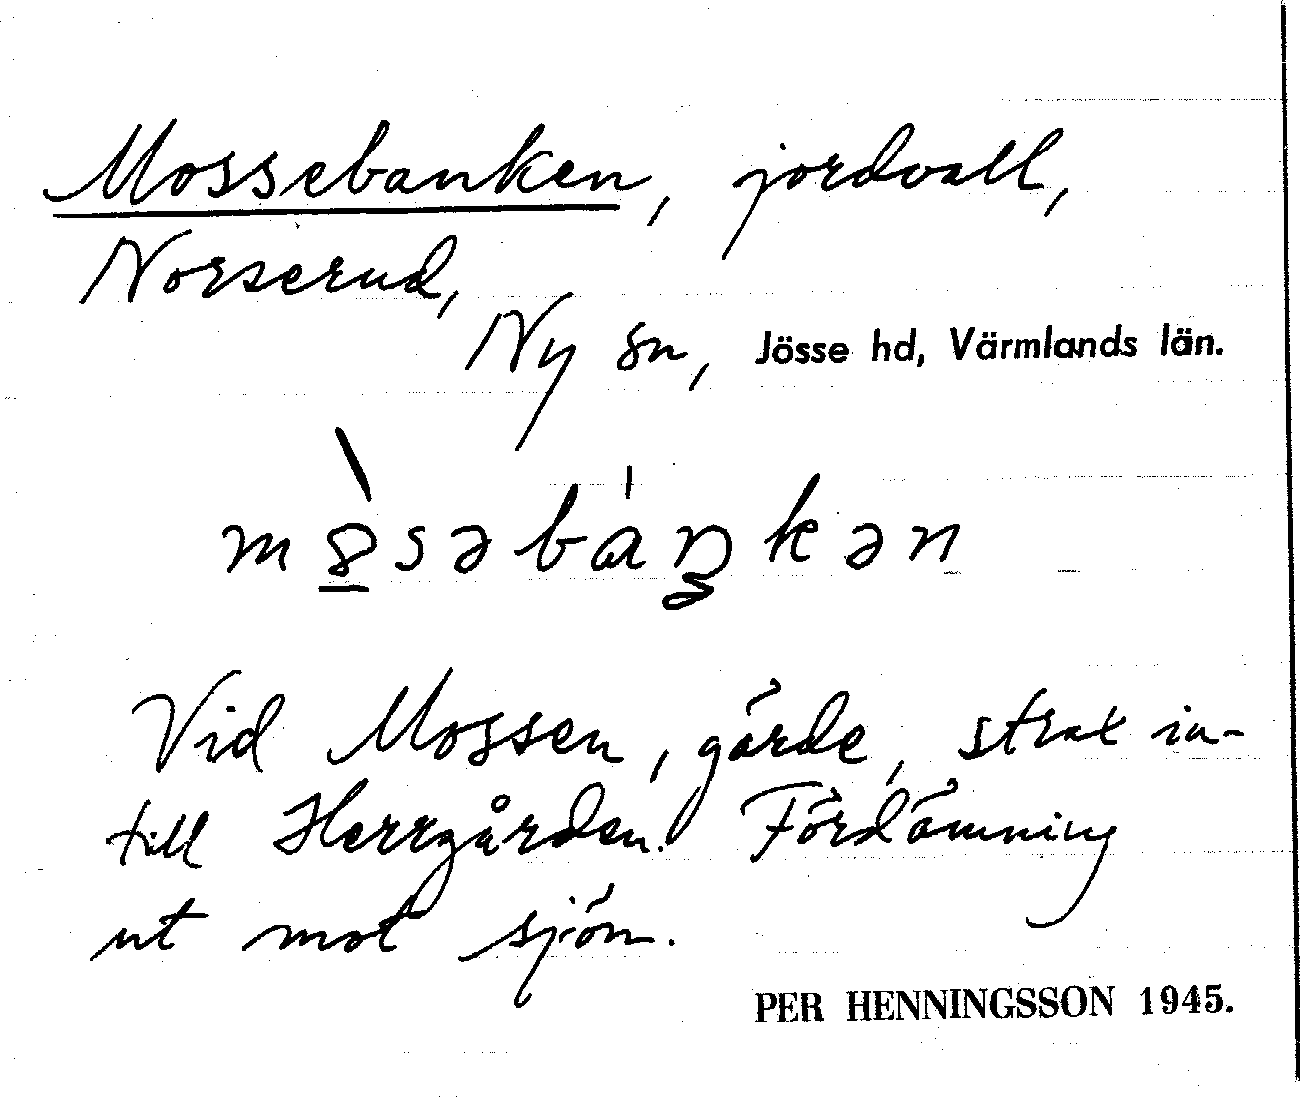 Mossebanken, jordvall,
Norserud,
Ny sn, Jösse hd, Värmlands län.
mò̲səbáŋkən
Vid Mossen, gärde, strax in-
till Herrgården. Fördämning
ut mot sjön.
PER HENNINGSSON 1945.